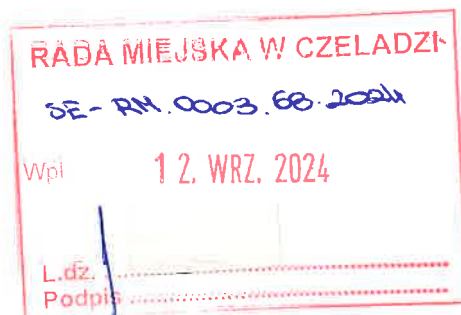 RADA MIEJSKA W CZELADZI
SE-RM.0003.68.2024
Wpł 12. WRZ. 2024
L.dz.
Podpis